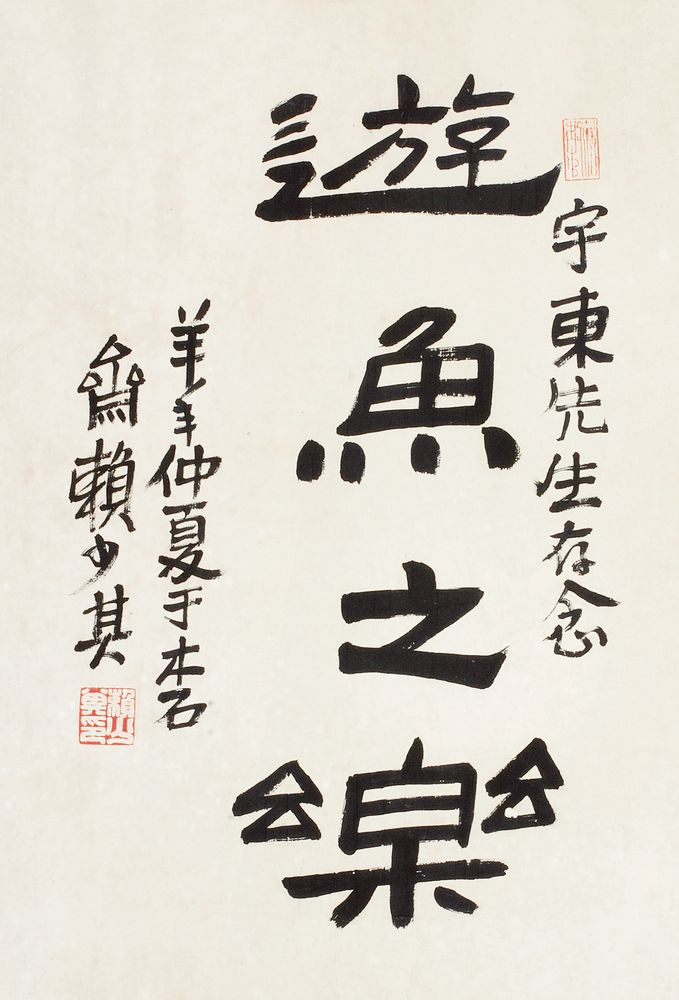 宇東先生存念
遊魚之樂
羊年仲夏于木石
齋賴少其
賴少其印